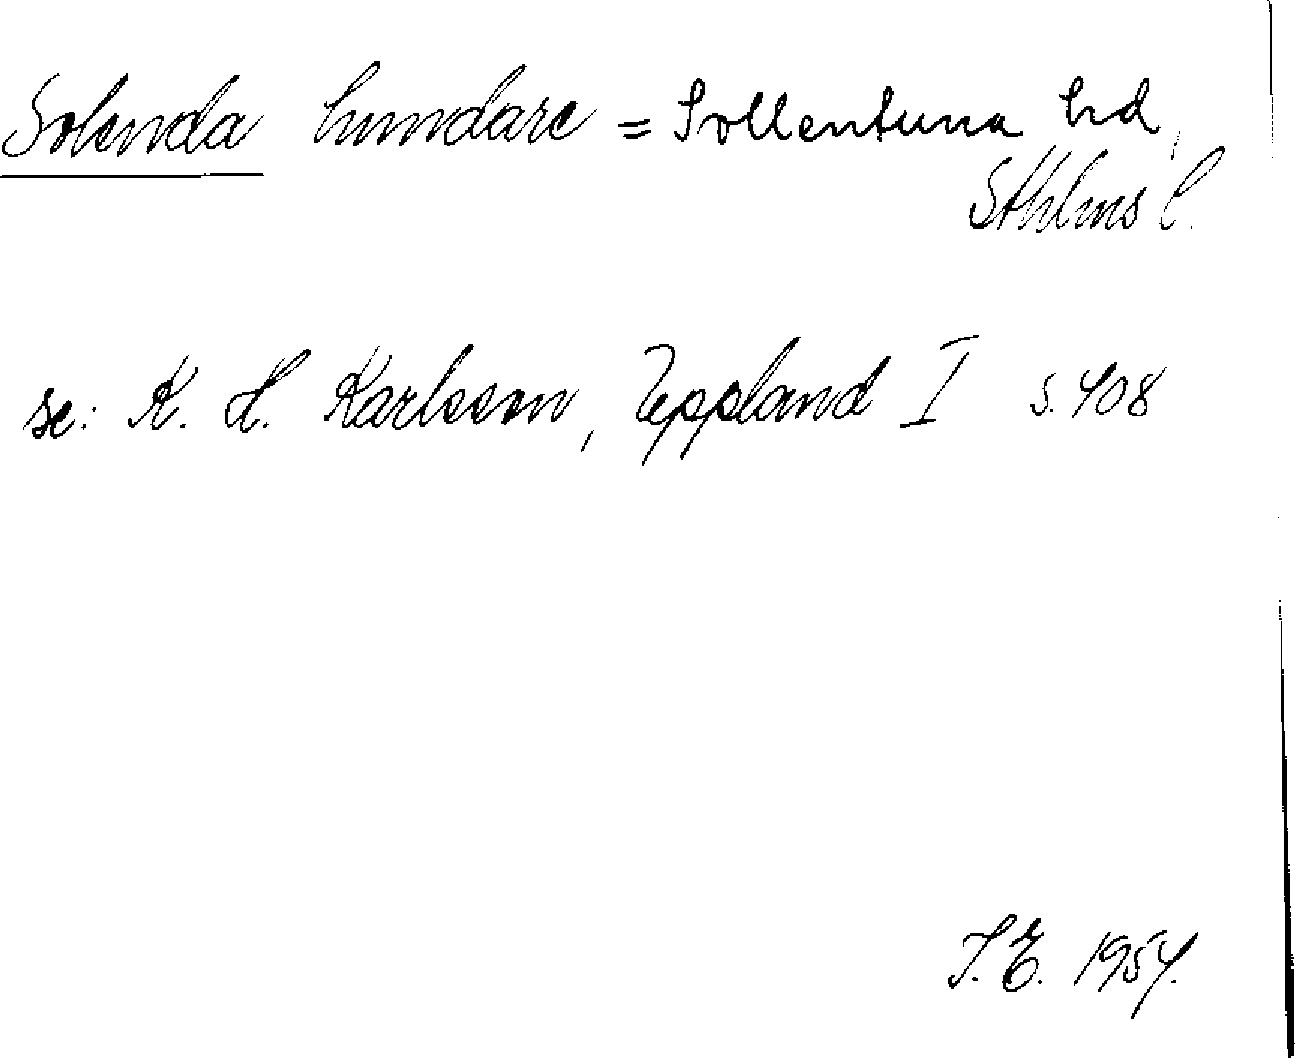 Solenda hundare = Sollentuna hd,
Sthlms l.
se: K. H. Karlsson, Uppland I s. 408
I. E. 1954.